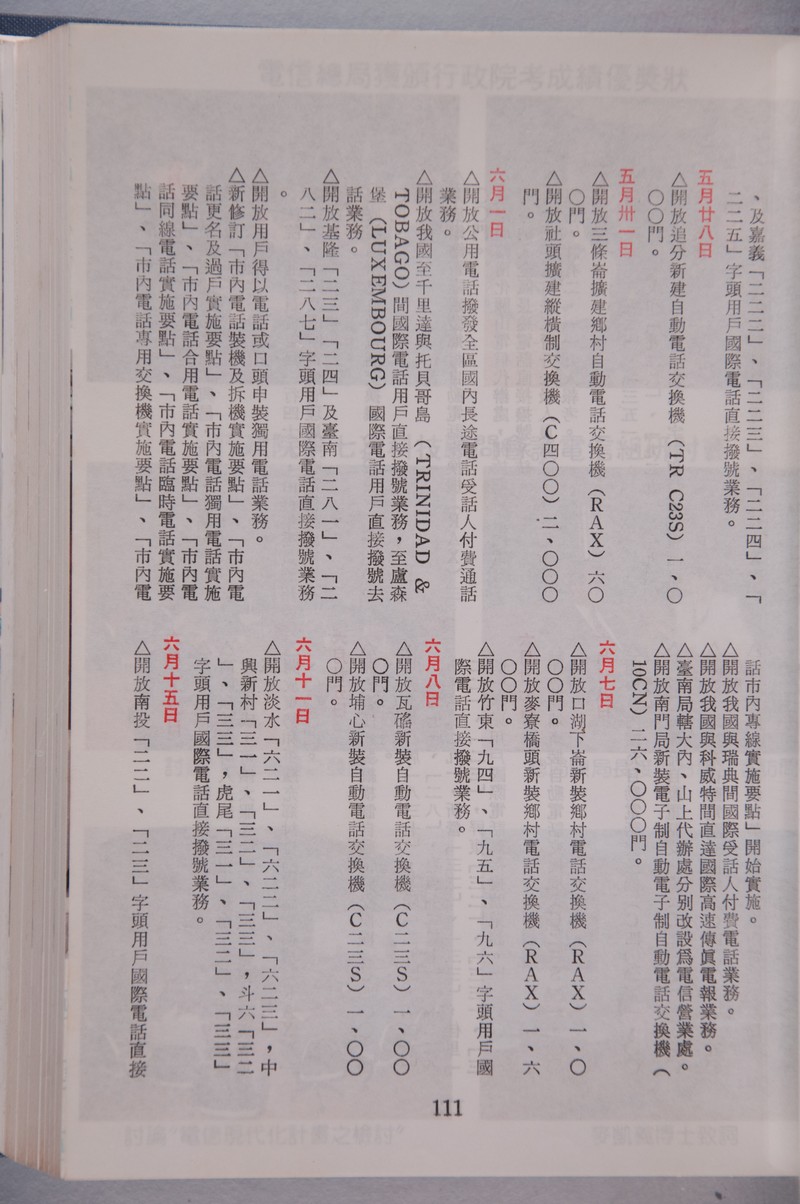 、及嘉義「二二二」、「二二三」、「二二四」、「
二二五」字頭用戶國際電話直接撥號業務。
五月廿八日
△開放追分新建自動電話交換機（TR C23S）一、〇
〇〇門。
五月卅一日
△開放三條崙擴建鄉村自動電話交換機（RAX）六〇
〇門。
△開放社頭擴建縱橫制交換機（C四〇〇）二、〇〇〇
門。
六月一日
△開放公用電話撥發全區國內長途電話受話人付費通話
業務。
△開放我國至千里達與托貝哥島（TRINIDAD &
TOBAGO）間國際電話用戶直接撥號業務，至盧森
堡（LUXEMBOURG）國際電話用戶直接撥號去
話業務。
△開放基隆「二三」「二四」及臺南「二八一」、「二
八二」、「二八七」字頭用戶國際電話直接撥號業務
。
△開放用戶得以電話或口頭申裝獨用電話業務。
△新修訂「市內電話裝機及拆機實施要點」、「市內電
話更名及過戶實施要點」、「市內電話獨用電話實施
要點」、「市內電話合用電話實施要點」、「市內電
話同線電話實施要點」、「市內電話臨時電話實施要
點」、「市內電話專用交換機實施要點」、「市內電
話市內專線實施要點」開始實施。
△開放我國與瑞典間國際受話人付費電話業務。
△開放我國與科威特間直達國際高速傳眞電報業務。
△臺南局轄大內、山上代辦處分別改設爲電信營業處。
△開放南門局新裝電子制自動電子制自動電話交換機（
10CN）二六、〇〇〇門。
六月七日
△開放口湖下崙新裝鄉村電話交換機（RAX）一、〇
〇〇門。
△開放麥寮橋頭新裝鄉村電話交換機（RAX）一、六
〇〇門。
△開放竹東「九四」、「九五」、「九六」字頭用戶國
際電話直接撥號業務。
六月八日
△開放瓦磘新裝自動電話交換機（C二三S）一、〇〇
〇門。
△開放埔心新裝自動電話交換機（C二三S）一、〇〇
〇門。
六月十一日
△開放淡水「六二一」、「六二二」、「六二三」，中
興新村「三一」、「三二」、「三三」，斗六「三二
」、「三三」，虎尾「三一」、「三二」、「三三」
字頭用戶國際電話直接撥號業務。
六月十五日
△開放南投「二二」、「二三」字頭用戶國際電話直接
111